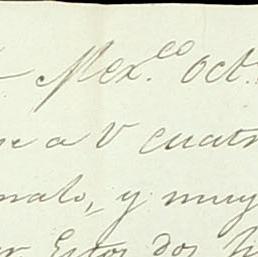 Mex.co Oct.
se a V cuatr
malo, y muy
Estos dos